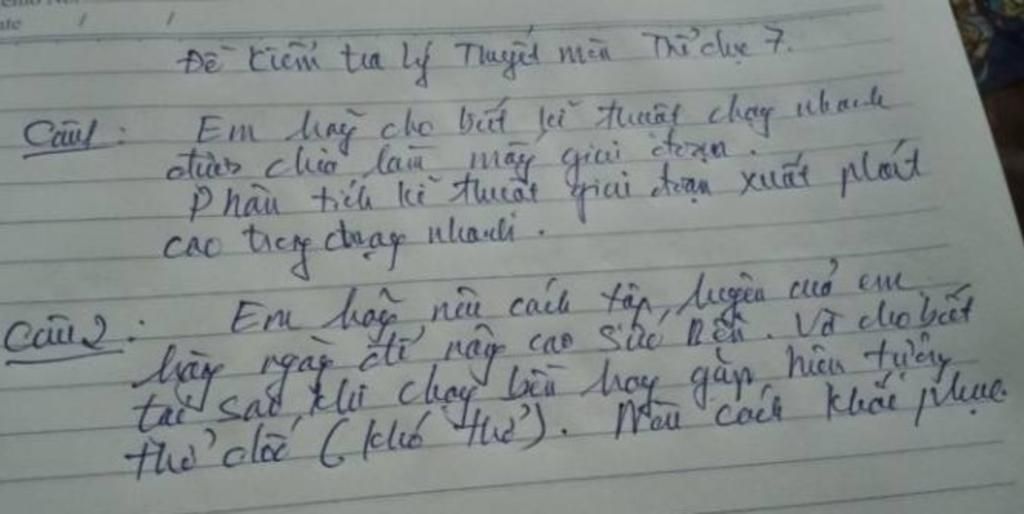 Đề kiểm tra lý Thuyết môn Thể dục 7.
Câu 1: Em hãy cho biết kĩ thuật chạy nhanh
được chia làm mấy giai đoạn.
Phân tích kĩ thuật giai đoạn xuất phát
cao trong chạy nhanh.
Câu 2: Em hãy nêu cách tập luyện của em
hằng ngày để nâng cao sức bền. Và cho biết
tại sao khi chạy bền hay gặp hiện tượng
thở dốc (khó thở). Nêu cách khắc phục.